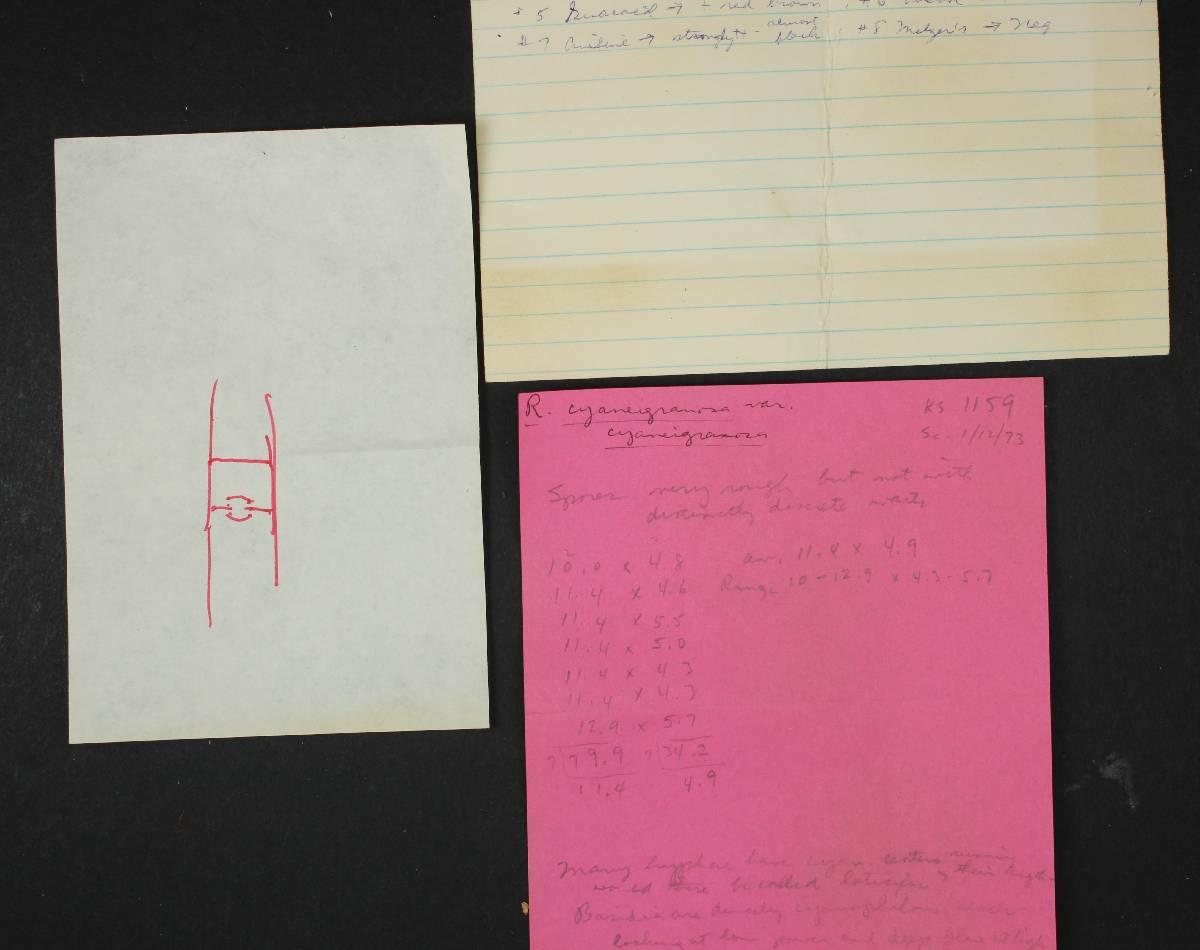 # 5 Guaiacol → ± red brown, # 6
# 7 Aniline → strongly + - almost black; # 8 Melzer's → neg
R. cyaneigranosa var.
cyaneigranosa
KS 1159
Sc. 1/12/73
Spores very rough but not with
distinctly discrete warts
10.0 x 4.8 av. 11.4 x 4.9
11.4 x 4.6 Range 10-12.9 x 4.3-5.7
11.4 x 5.5
11.4 x 5.0
11.4 x 4.3
11.4 x 4.3
12.9 x 5.7
7 79.9 7 34.2
11.4 4.9
Many hyphae have cyan. centers running their length
would these be called
Basidia are densely cyanophilous, black
looking at low power and deep blue at high